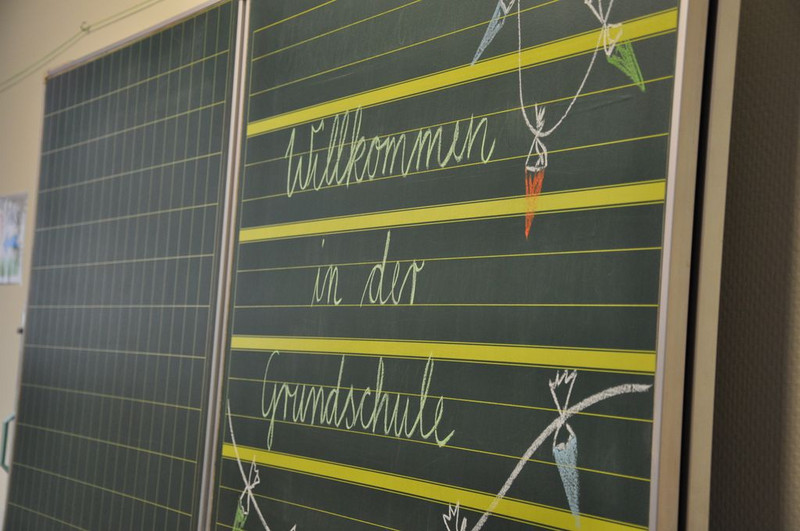 Willkommen
in der
Grundschule